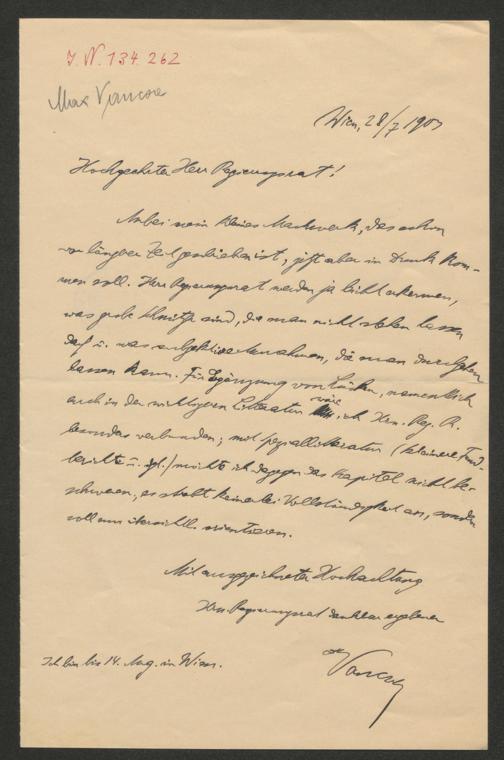 J. N. 134.262
Max Vancsa
Wien, 28/7 1903
Hochgeehrter Herr Regierungsrat!
Anbei mein kleines Machwerk, das schon
vor längerer Zeit geschrieben ist, jetzt aber in Druck kom-
men soll. Herr Regierungsrat werden ja leicht erkennen,
was grobe Schnitzer sind, die man nicht stehen lassen
darf u. was subjektive Annahmen, die man durchgehen
lassen kann. Für Ergänzung von Lücken, namentlich
auch in der wichtigeren Litteratur wäre ich Hrn. Reg. R.
besonders verbunden; mit Spezialliteratur (kleinere Fund-
berichte u. dgl.) möchte ich dagegen das Kapitel nicht be-
schweren, es strebt keinerlei Vollständigkeit an, sondern
soll nur übersichtl. orientieren.
Mit ausgezeichneter Hochachtung
Hrn. Regierungsrat dankbar ergebener
Vancsa
Ich bin bis 14. Aug. in Wien.